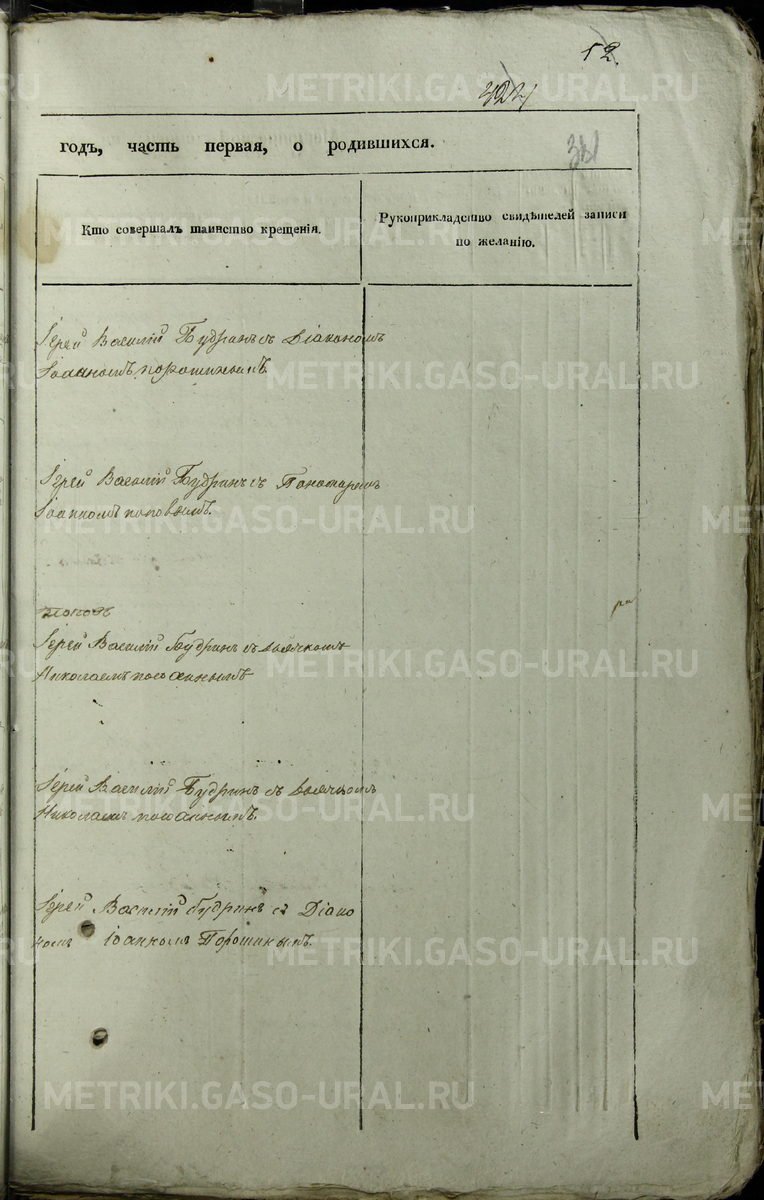 12.
годъ, часть первая, о родившихся.
Кто совершалъ таинство крещенія.
Рукоприкладство свидѣтелей записи
по желанію.
Іерей Василій Будринъ съ Діакономъ
Іоанномъ порошинымъ
Іерей Василій Будринъ съ Пономаремъ
Іоанномъ поповымъ.
Іерей Василій Будринъ съ дьячкомъ
Николаемъ
Іерей Василій Будринъ съ дьячкомъ
Николаемъ
Іерей Василій будринъ съ Діако
номъ Іоанномъ Порошинымъ.
METRIKI.GASO-URAL.RU